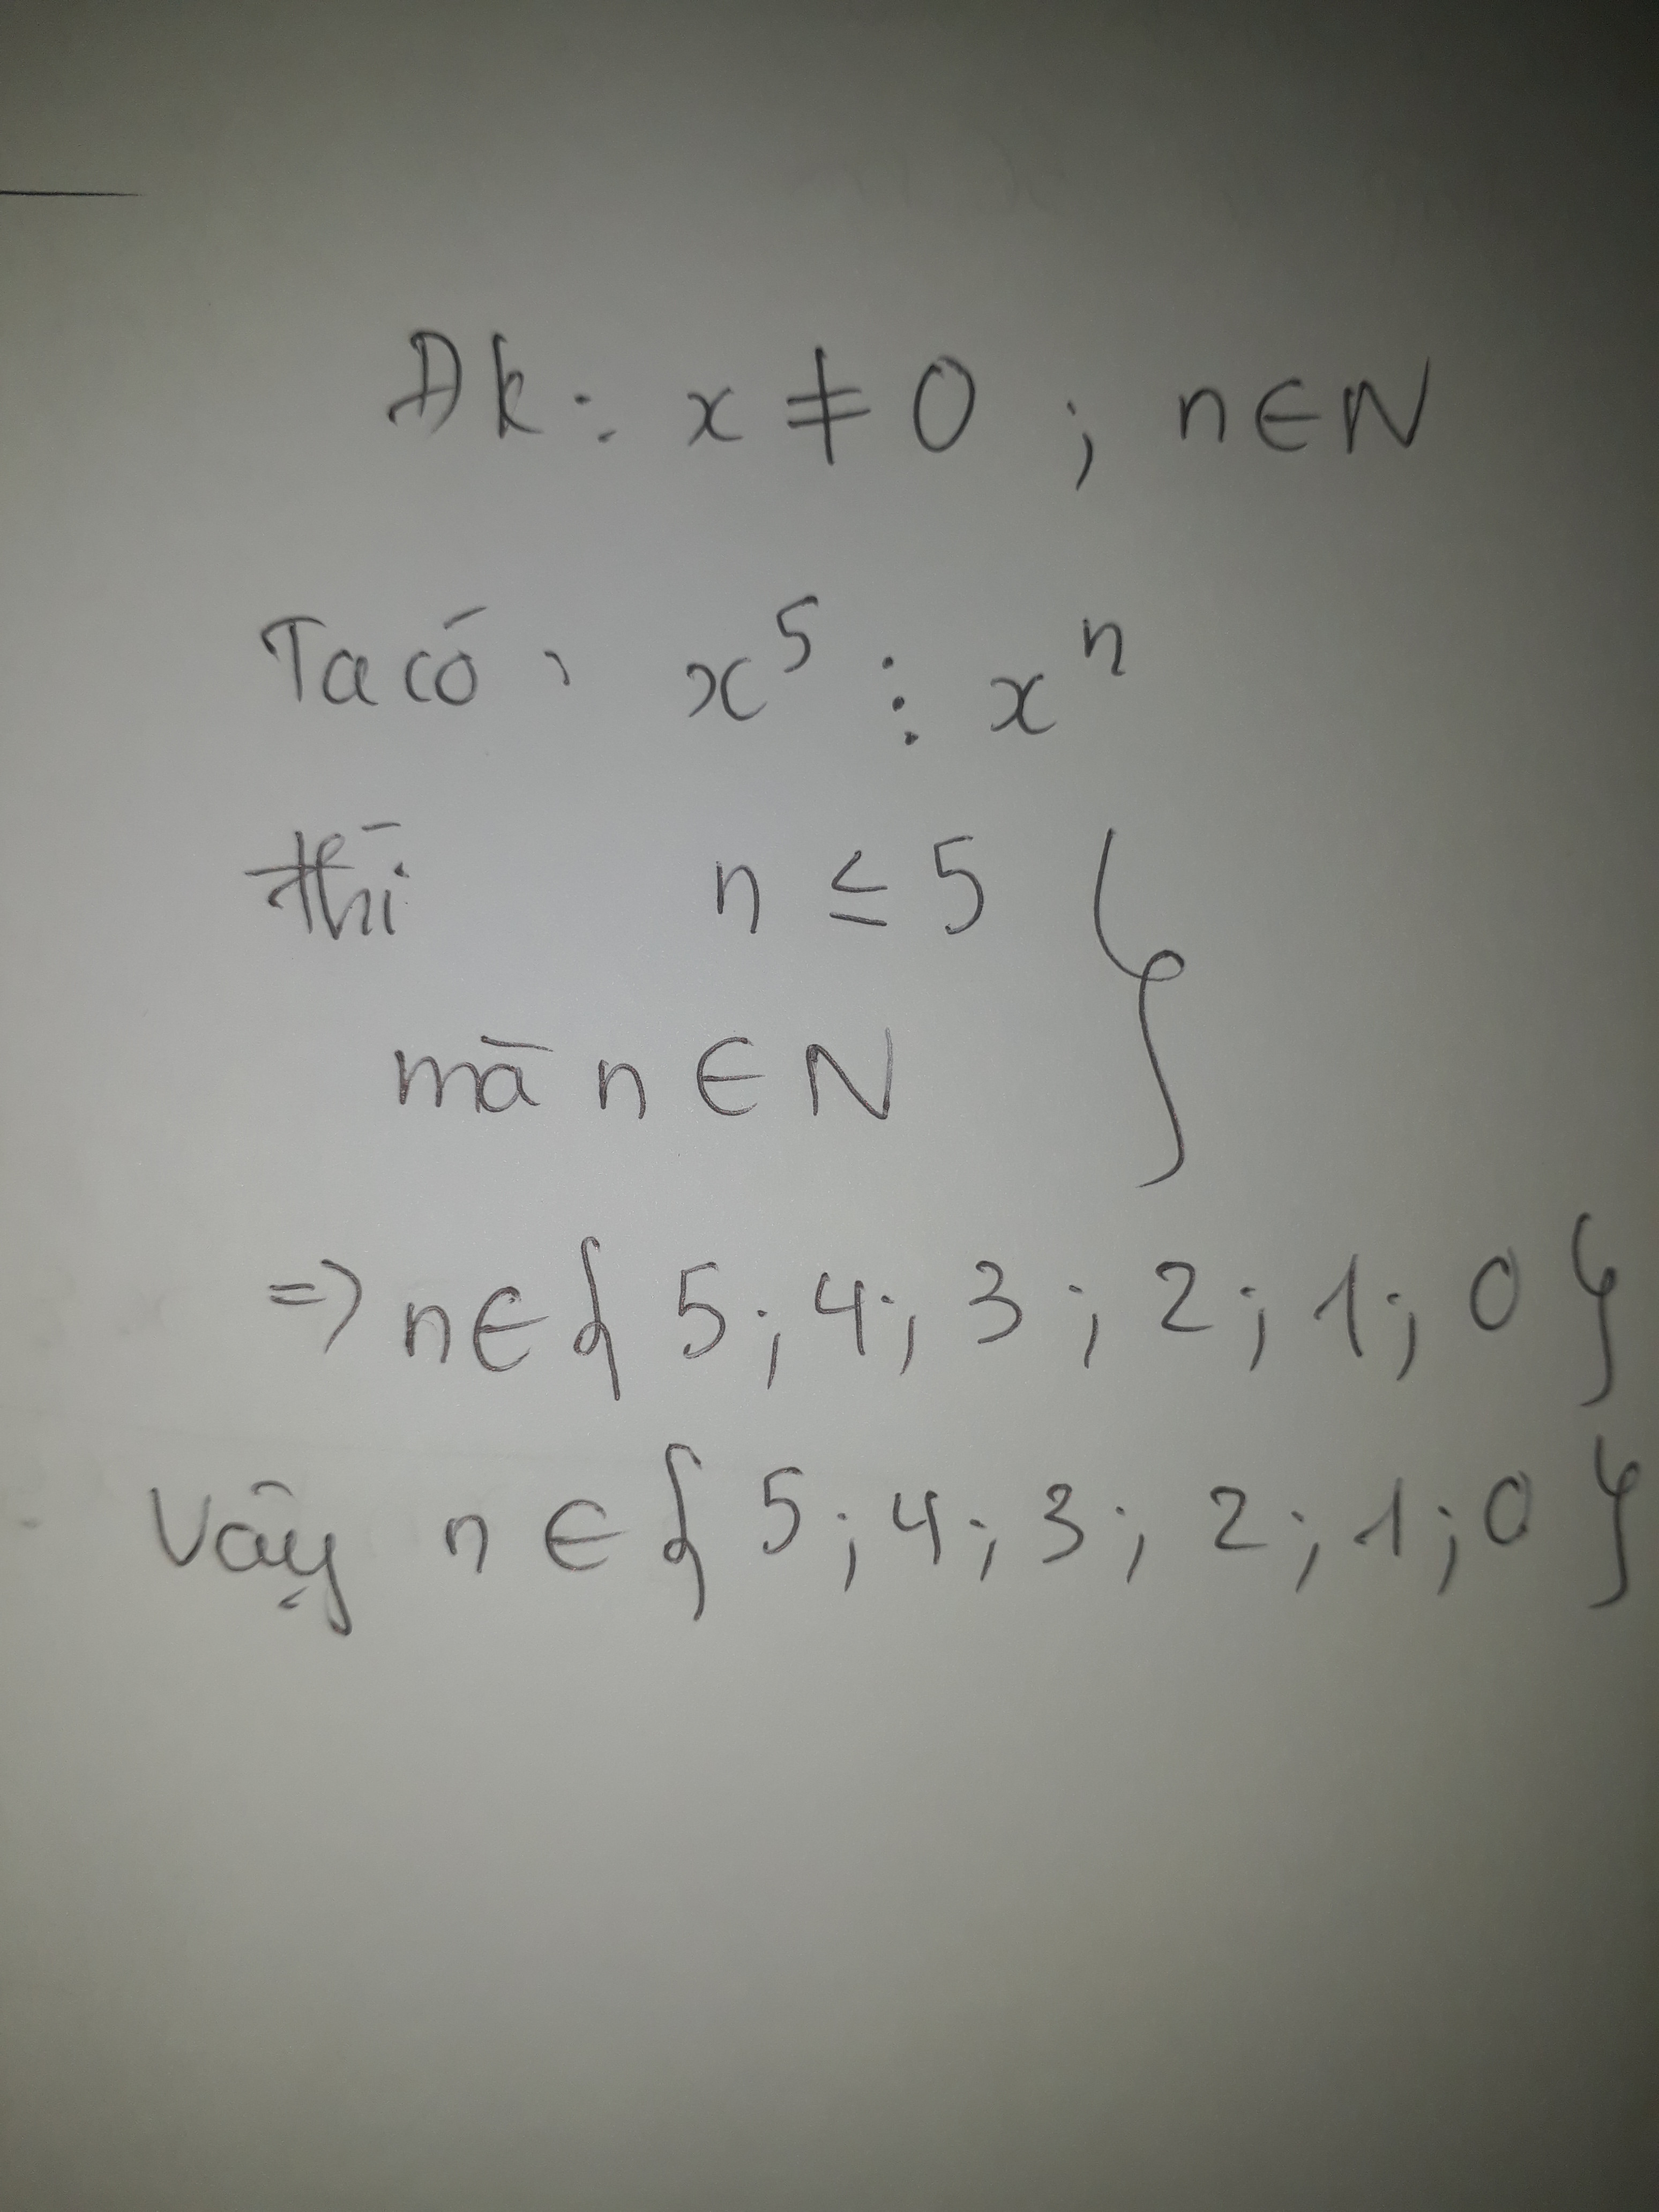 Đk: x ≠ 0 ; n ∈ N
Ta có: x⁵ ⋮ xⁿ
thì n ≤ 5 }
mà n ∈ N
=> n ∈ { 5; 4; 3; 2; 1; 0 }
Vậy n ∈ { 5; 4; 3; 2; 1; 0 }